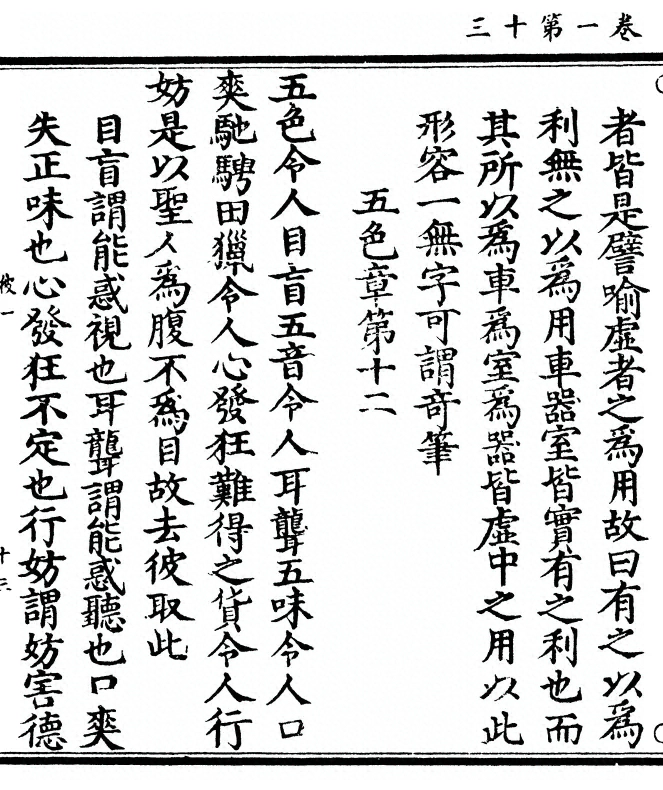 卷一第十三
者皆是譬喻虛者之爲用故曰有之以爲
利無之以爲用車器室皆實有之利也而
其所以爲車爲室爲器皆虛中之用以此
形容一無字可謂奇筆
五色章第十二
五色令人目盲五音令人耳聾五味令人口
爽馳騁田獵令人心發狂難得之貨令人行
妨是以聖人爲腹不爲目故去彼取此
目盲謂能惑視也耳聾謂能惑聽也口爽
失正味也心發狂不定也行妨謂妨害德
十三